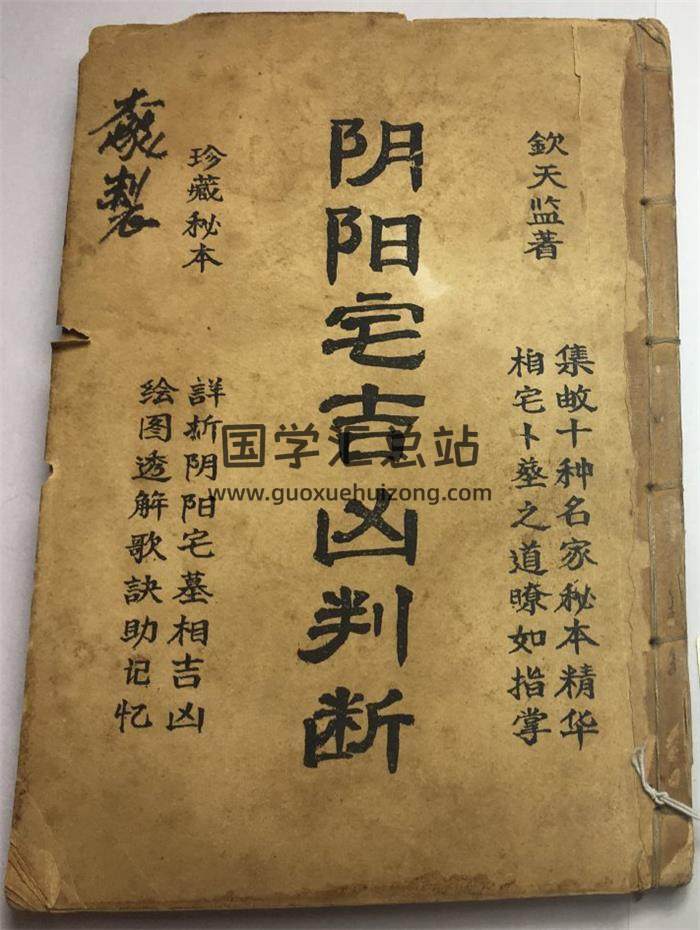 欽天监著
集十种名家秘本精华
相宅卜墓之道瞭如指掌
阴阳宅吉凶判断
珍藏秘本
詳析阴阳宅墓相吉凶
绘图透解歌訣助记忆
製
国学汇总站
www.guoxuehuizong.com